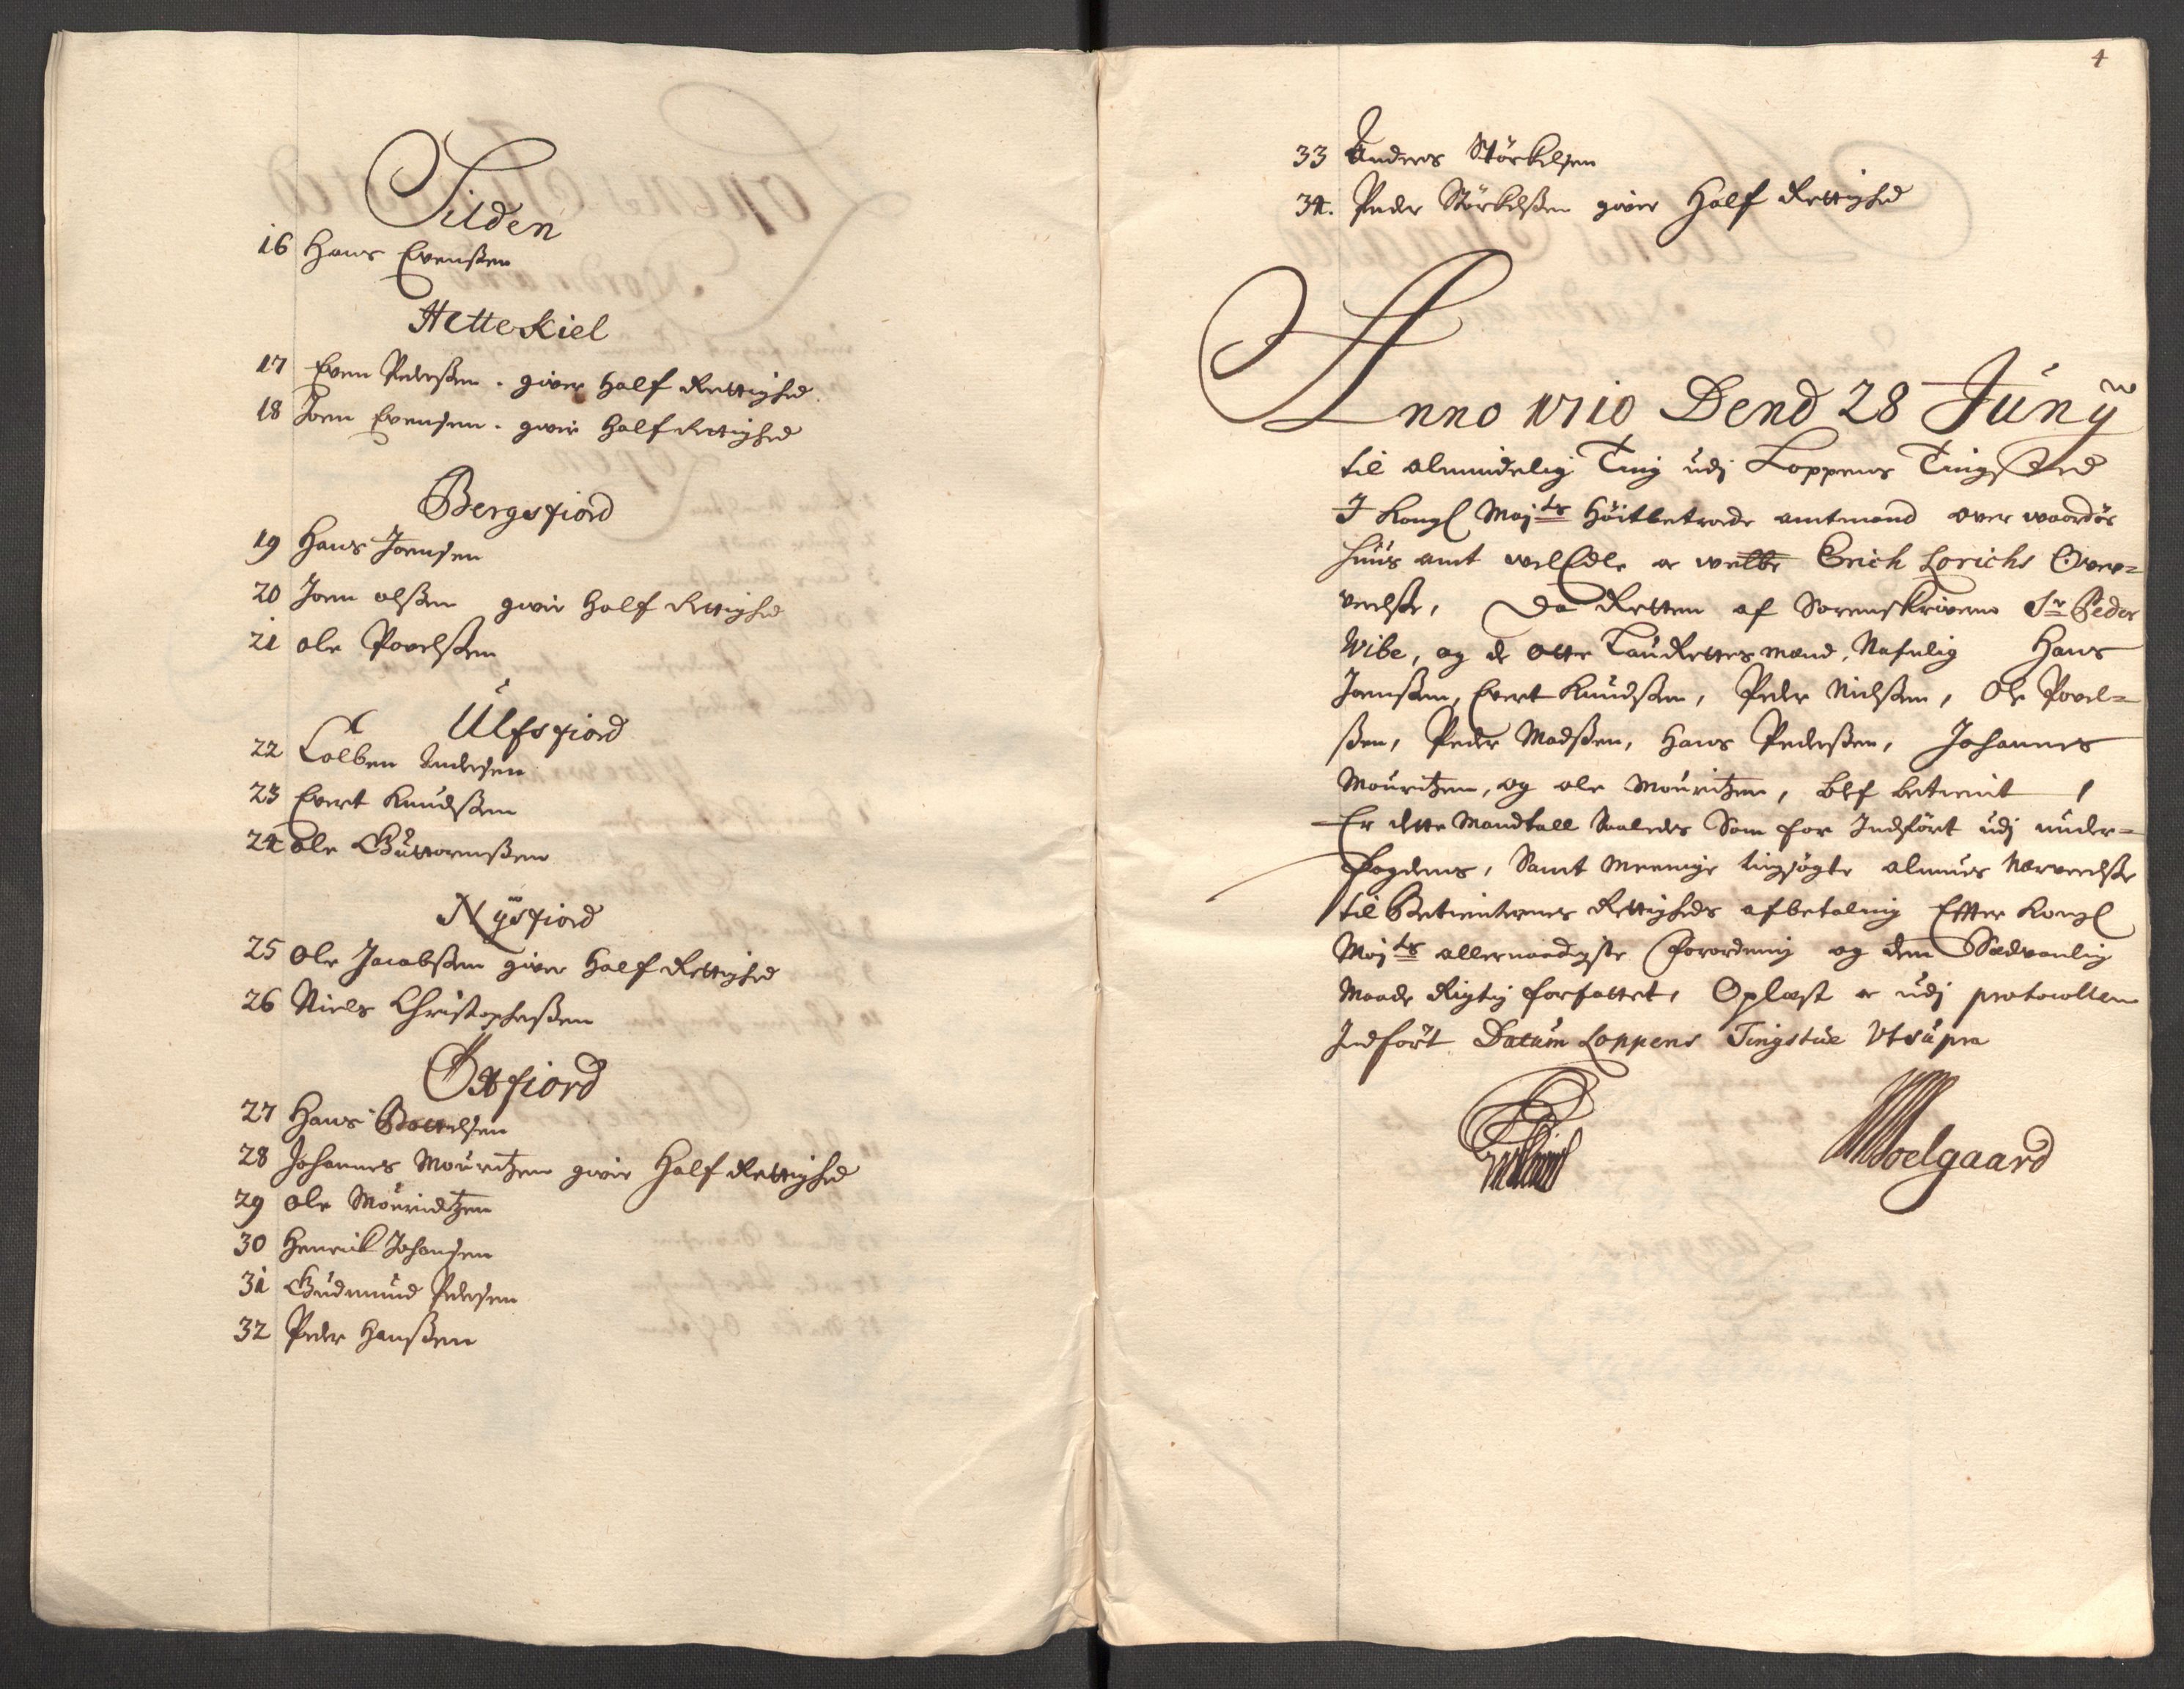 Silden
16 Hans Evenßen
Hetteskiel
17 Even Pederßen. giver Half Rettighed.
18 Joen Evensen. giver Half Rettighed
Bergsfiord
19 Hans Joensen
20 Joen olßen giver Half Rettighed
21 ole Povelßen
Ulfsfiord
22 Colben Andersen
23 Evert Knudßen
24 ole Guttormßen
Nÿsfiord
25 Ole Jacobßen giver Half Rettighed
26 Niels Christophersßen
Øxfiord
27 Hans Bottelsen
28 Johannes Mouritzen giver Half Rettighed
29 ole Mouridtzen
30 Henrick Johansen
31 Gudmund Pedersen
32 Peder Hanßen
4
33 Anders Störkelsen
34. Peder Störkelßen giver Half Rettighed
Anno 1710 Dend 28 Junÿ
til almindelig Ting udj Loppens Tingsted
I Kongl Maj:ts Höitbetroede amtmand over waardöe
huus amt velEdle oc Erich Lorichs Over-
verelße, Da Retten af Sorenskriveren Sr Peder
Wibe, og de otte LauRettes mænd, Nafnlig Hans
Joensßen, Evert Knudßen, Peder Nielßen, Ole Povel-
ßen, Peder Madßen, Hans Pederßen, Johannes
Mouritzen, og ole Mouritzen, blef betient,
Er dette Mandtall Saaledes Som for Indfört udj under-
fogdens, Samt Meenige tingsögte almues Nærverelße
til Betienternes Rettigheds afbetaling Efter Kongl
Maj:ts allernaadigste forordning og dend Sædvanlig
Maade Rigtig forfattet, Oplæst oc udj protocollen
Indfört Datum Loppens Tingstue Utsupra
Soelgaard